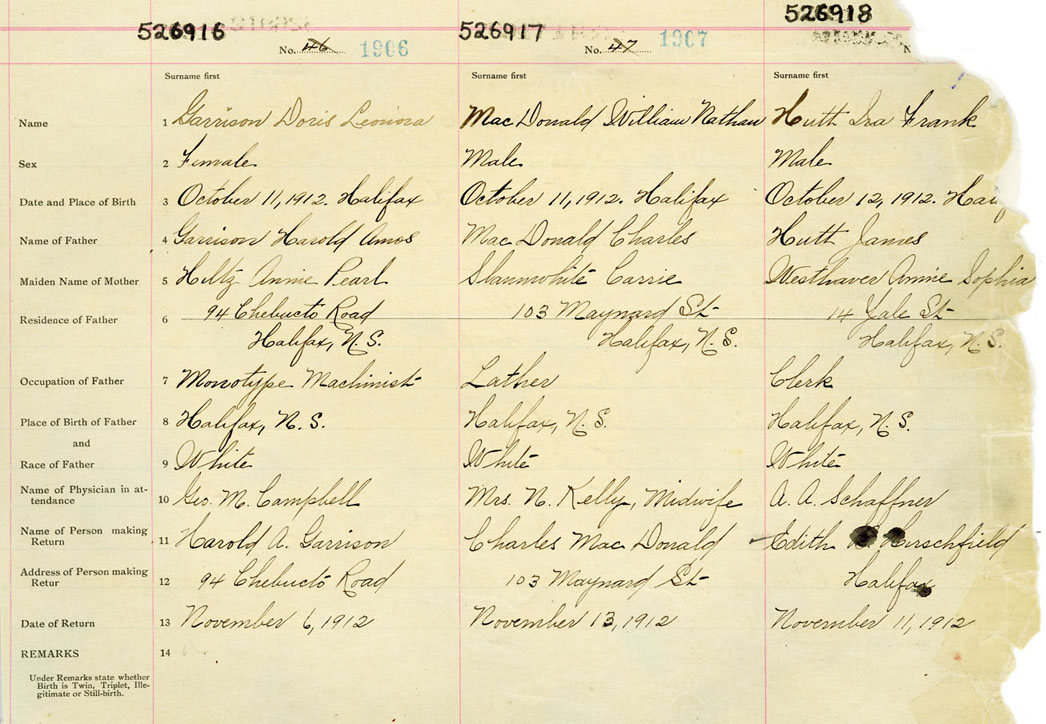 526916 526917 526918
No. 46 1906 No. 47 1907 N
Surname first Surname first Surname first
Name 1 Garrison Doris Leonora Mac Donald William Nathan Hutt Ira Frank
Sex 2 Female Male Male
Date and Place of Birth 3 October 11, 1912. Halifax October 11, 1912. Halifax October 12, 1912. Ha
Name of Father 4 Garrison Harold Amos Mac Donald Charles Hutt James
Maiden Name of Mother 5 Hiltz Annie Pearl Slaunwhite Carrie Westhaver Annie Sophia
Residence of Father 6 94 Chebucto Road 103 Maynard St 14 Yale St
Halifax, N.S. Halifax, N.S. Halifax, N.S.
Occupation of Father 7 Monotype Machinist Lather Clerk
Place of Birth of Father 8 Halifax, N.S. Halifax, N.S. Halifax, N.S.
and
Race of Father 9 White White White
Name of Physician in at-
tendance 10 Geo. M. Campbell Mrs. N. Kelly, Midwife A. A. Schaffner
Name of Person making
Return 11 Harold A. Garrison Charles Mac Donald Edith Hirschfield
Address of Person making
Retur 12 94 Chebucto Road 103 Maynard St Halifax
Date of Return 13 November 6, 1912 November 13, 1912 November 11, 1912
REMARKS 14
Under Remarks state whether
Birth is Twin, Triplet, Ille-
gitimate or Still-birth.